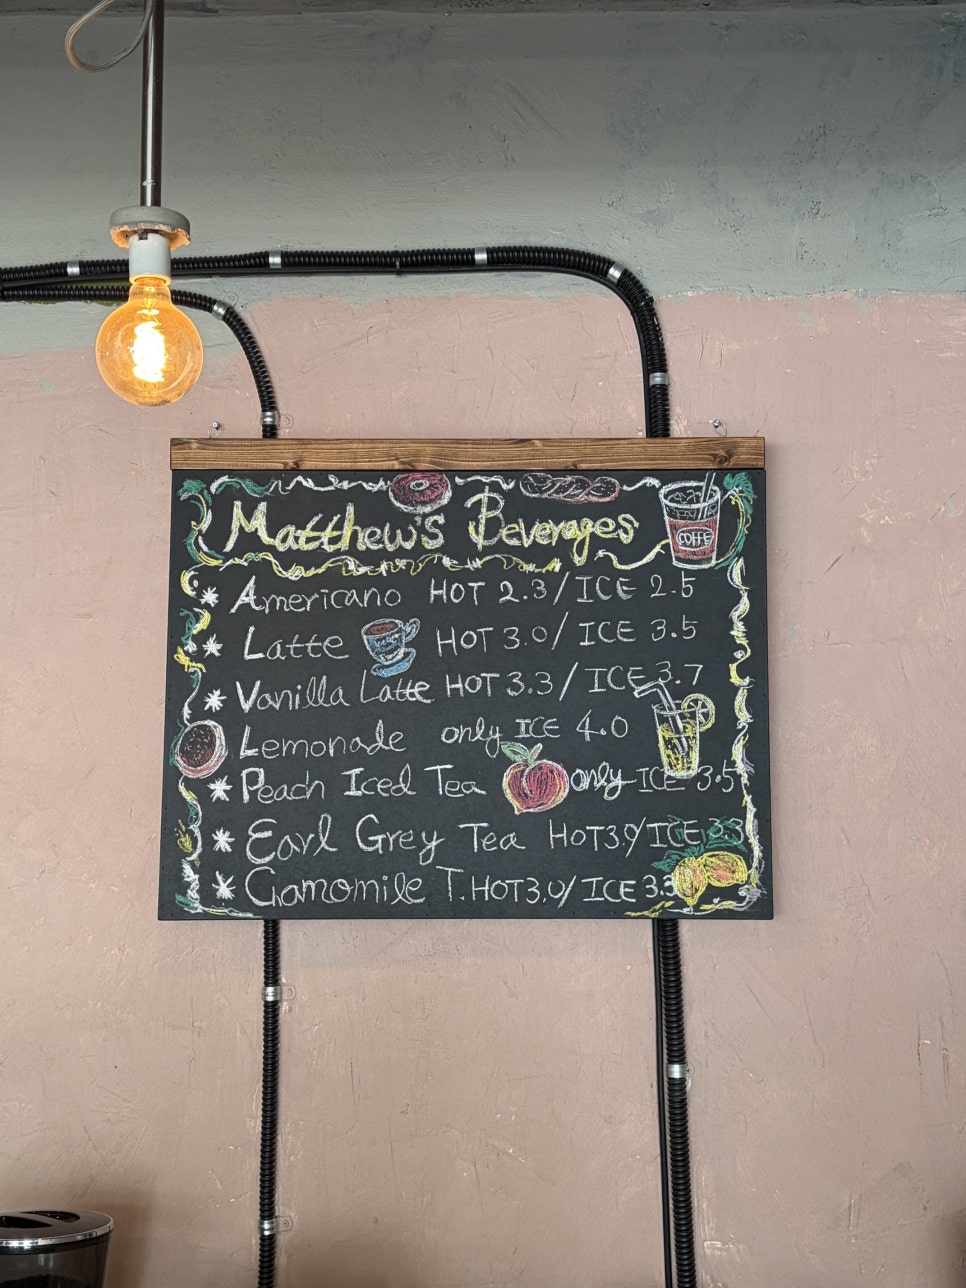 Matthew's Beverages
COFFE
* Americano HOT 2.3/ICE 2.5
* Latte HOT 3.0/ICE 3.5
* Vanilla Latte HOT 3.3/ICE 3.7
Lemonade only ICE 4.0
* Peach Iced Tea only ICE 3.5
* Earl Grey Tea HOT3.0/ICE 3.3
* Camomile T. HOT3.0/ICE 3.3